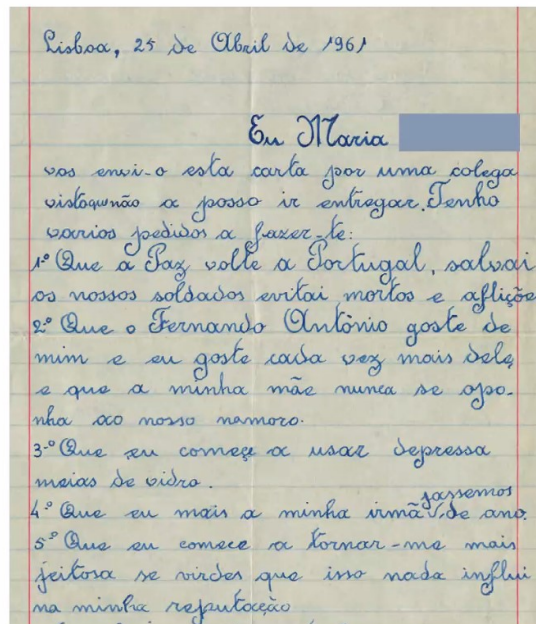 Lisboa, 25 de Abril de 1961
Eu Maria
vos envi-o esta carta por uma colega
vistoquenão a posso ir entregar. Tenho
varios pedidos a fazer-te:
1º Que a Paz volte a Portugal, salvai
os nossos soldados evitai mortos e afliçõe
2º Que o Fernando António goste de
mim e eu goste cada vez mais dele
e que a minha mãe nunca se opo-
nha ao nosso namoro.
3-º Que eu começe a usar depressa
meias de vidro.
4.º Que eu mais a minha irmã passemos de ano.
5º Que eu comece a tornar-me mais
jeitosa se virdes que isso nada influi
na minha reputação